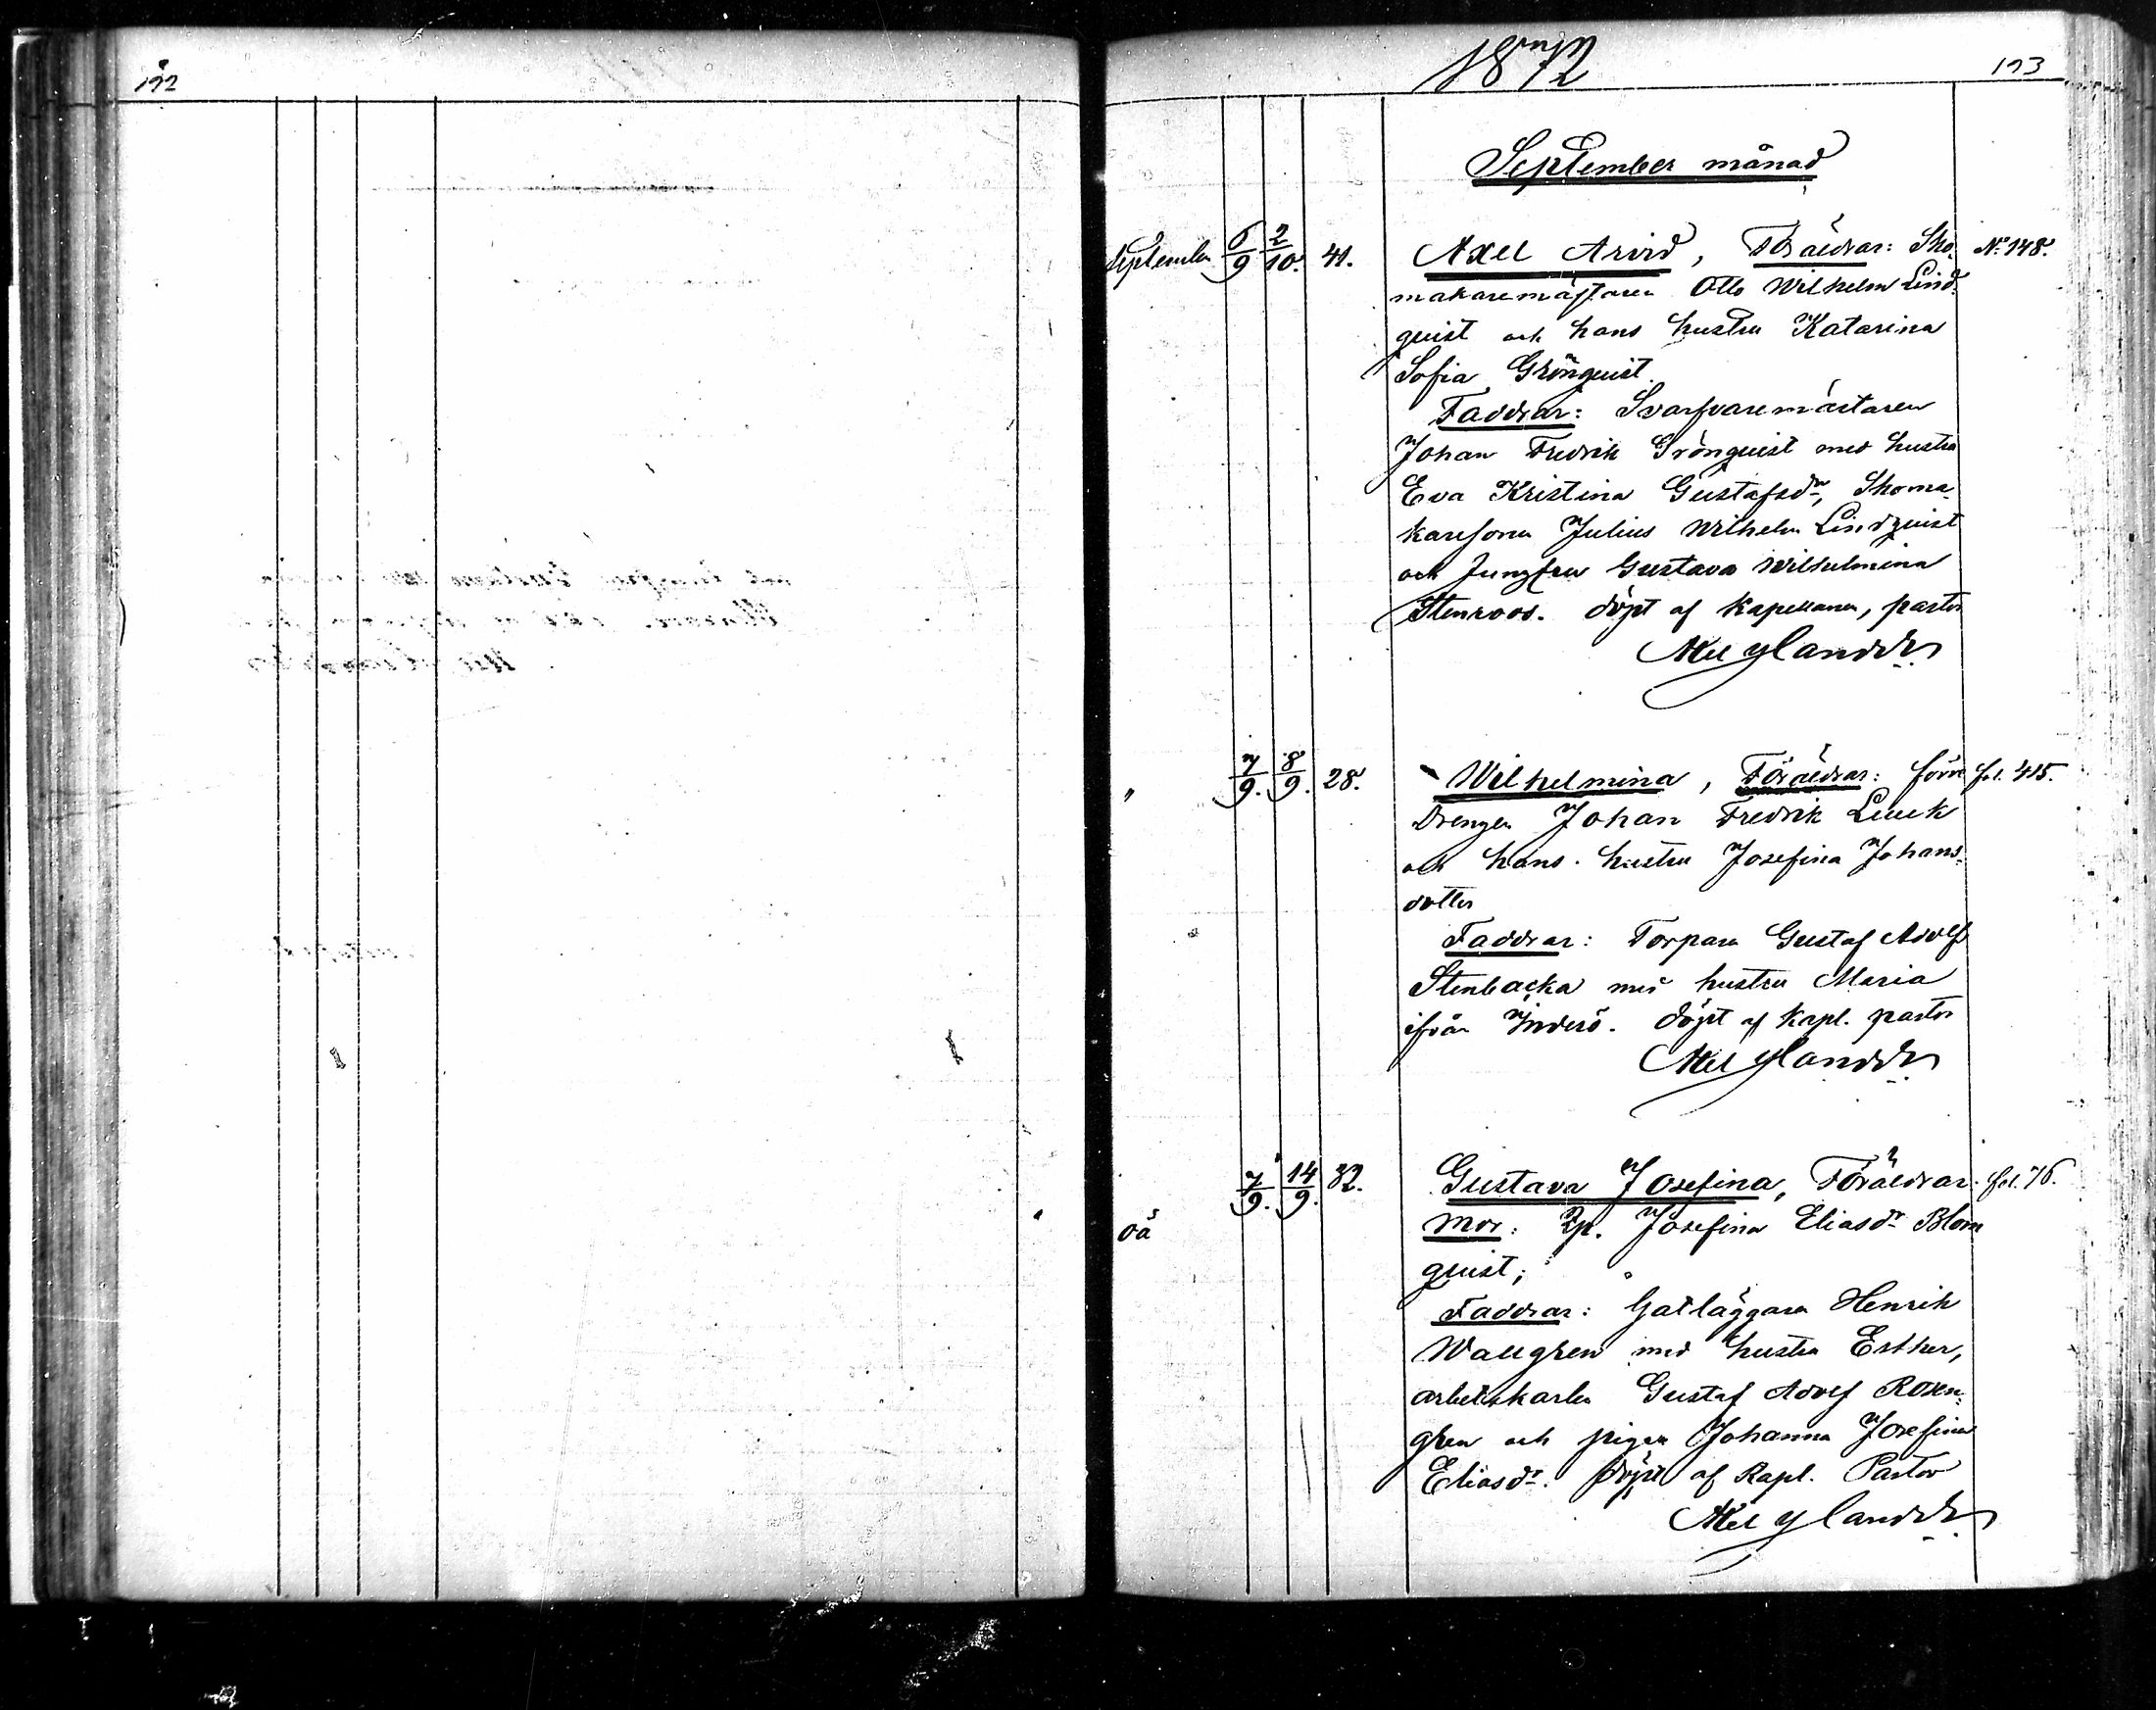 192
1872
193
September månad
September 6/9 2/10. 41. Axel Arvid, Föräldrar: Sko- No 148.
makaremästaren Otto Wilhelm Lind-
quist och hans hustru Katarina
Sofia Grönquist.
Faddrar: Svarfvaremästaren
Johan Fredrik Grönquist med hustru
Eva Kristina Gustafsdr, Skoma-
karesonen Julius Wilhelm Lindquist
och Jungfru Gustava Wilhelmina
Stenroos. döpt af Kapellanen, pastor
Axel
" 7/9. 8/9. 28. Wilhelmina, Föräldrar: förre fol. 415.
Drengen Johan Fredrik
och hans hustru Josefina Johans-
dotter
Faddrar: Torparen Gustaf Adolf
Stenbacka med hustru Maria
ifrån Inderö. döpt af Kapl. pastor
Axel
7/9. 14/9. 32. Gustava Josefina, Föräldrar: fol. 76.
oä Mor: Josefina Eliasdr Blom
quist;
Faddrar: Gatläggaren Henrik
Wallgren med hustru Esther,
arbetskarlen Gustaf Adolf Rosen-
gren och pigan Johanna Josefina
Eliasdr. döpt af Kapl. Pastor
Axel